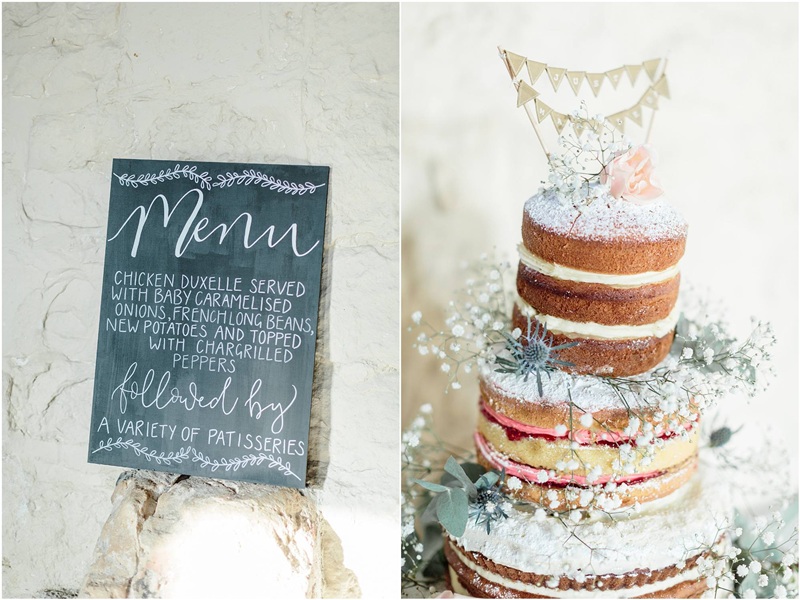 Menu
CHICKEN DUXELLE SERVED
WITH BABY CARAMELISED
ONIONS, FRENCH LONG BEANS,
NEW POTATOES AND TOPPED
WITH CHARGRILLED
PEPPERS
followed by
A VARIETY OF PATISSERIES